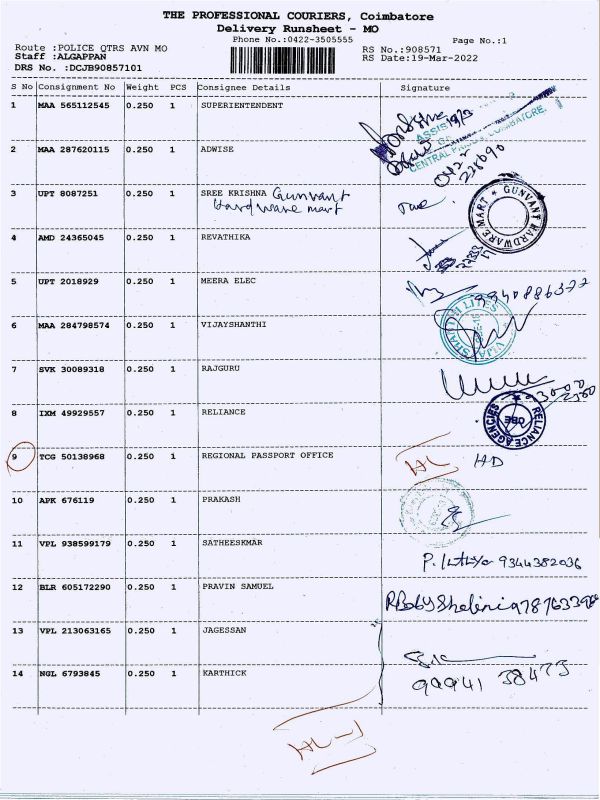 THE PROFESSIONAL COURIERS, Coimbatore
Delivery Runsheet - MO
Phone No.:0422-3505555
Page No.:1
Route :POLICE QTRS AVN MO
RS No.:908571
Staff :ALGAPPAN
RS Date:19-Mar-2022
DRS No. :DCJB90857101
S No Consignment No Weight PCS Consignee Details Signature
1 MAA 565112545 0.250 1 SUPERIENTENDENT
2 MAA 287620115 0.250 1 ADWISE
CENTRAL PRISON, COIMBATORE.
3 UPT 8087251 0.250 1 SREE KRISHNA Gunvant
Hardware mart
GUNVANT HARDWARE MART
4 AMD 24365045 0.250 1 REVATHIKA
5 UPT 2018929 0.250 1 MEERA ELEC
6 MAA 284798574 0.250 1 VIJAYSHANTHI
7 SVK 30089318 0.250 1 RAJGURU
8 IXM 49929557 0.250 1 RELIANCE
RELIANCE AGENCIES
CBE
9 TCG 50138968 0.250 1 REGIONAL PASSPORT OFFICE
HD
10 APK 676119 0.250 1 PRAKASH
11 VPL 938599179 0.250 1 SATHEESKMAR
9344382036
12 BLR 605172290 0.250 1 PRAVIN SAMUEL
13 VPL 213063165 0.250 1 JAGESSAN
14 NGL 6793845 0.250 1 KARTHICK
99941 38473